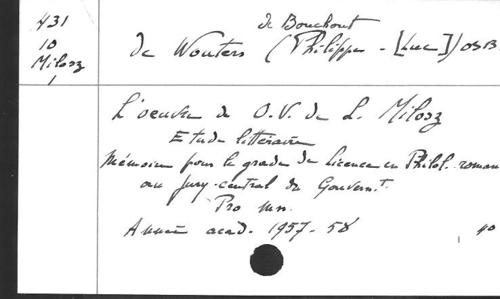 431
10
Milosz
1
de Bouchout
de Wouters (Philippe - [Luc]) OSB
L'oeuvre de O.V. de L. Milosz
Etude littéraire
Mémoire pour le grade de licence en Philol. romane
au Jury-central du Gouvern.t
Pro mn.
Année acad. 1957-58